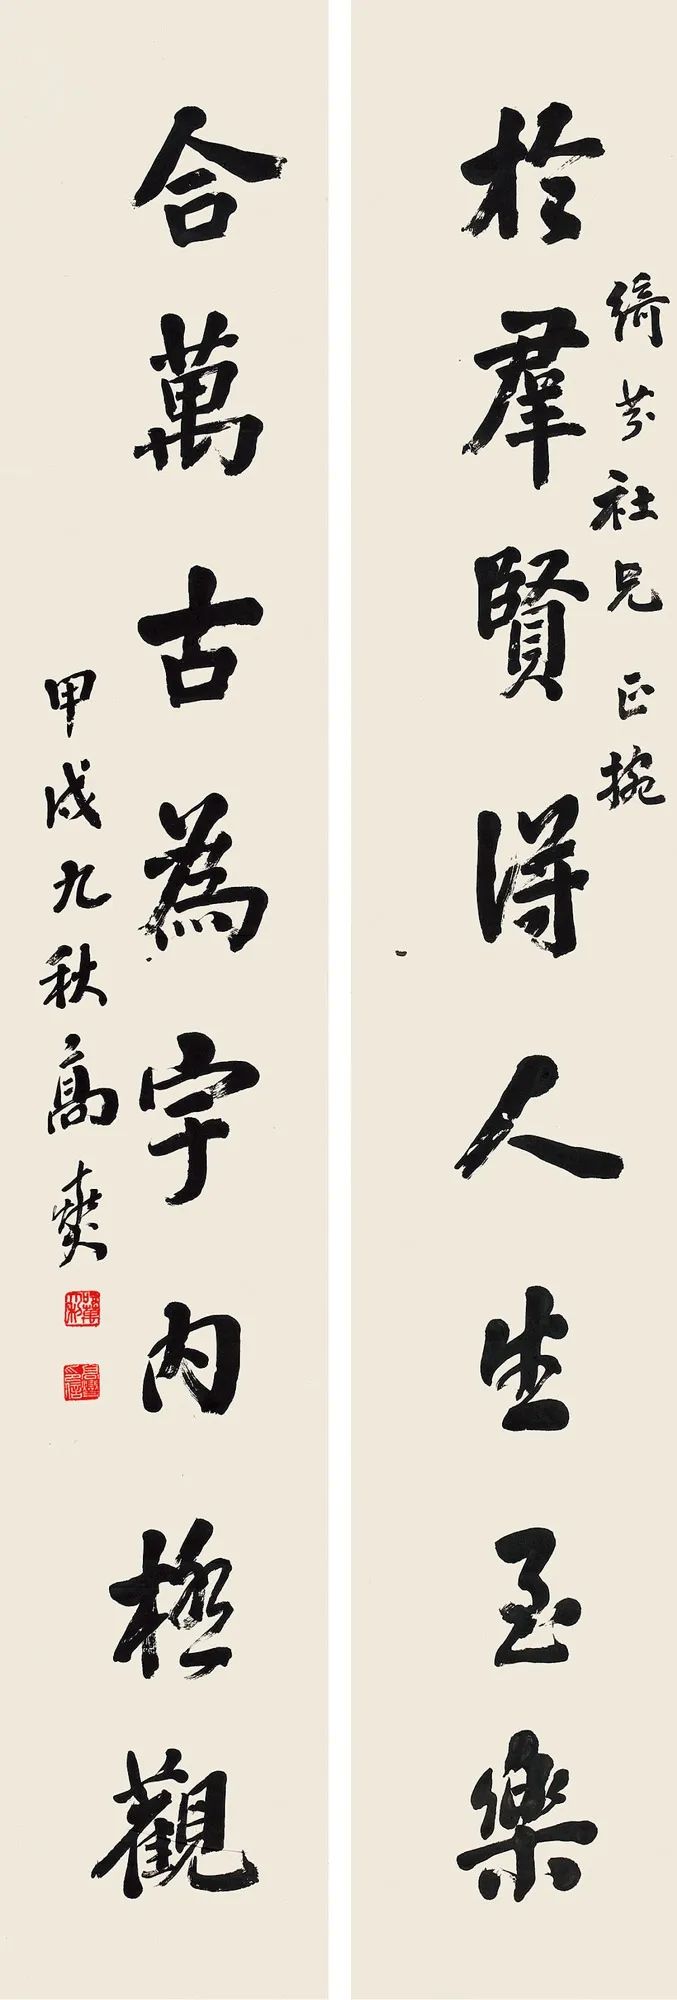 綺芬社兄正捥
於羣賢得人生至樂
合萬古為宇內極觀
甲戌九秋高燮